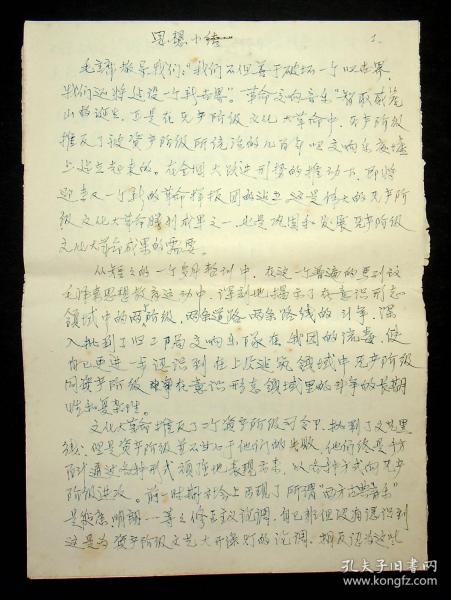 思想小结
1.
毛主席教导我们："我们不但善于破坏一个旧世界，
我们还将建设一个新世界"。革命交响音乐"智取威虎
山的诞生，正是在无产阶级文化大革命中，无产阶级
摧毁了被资产阶级所统治的几百年旧交响乐废墟
上建立起来的。在全国大跃进形势的推动下，即将
迎来又一个新的革命样板团的建立，这是伟大的无产阶
级文化大革命胜利成果之一，也是巩固和发展无产阶级
文化大革命成果的需要。
从短短的一个多月整训中，在这一个普遍的受到
毛泽东思想教育运动中，深刻地揭示了在意识形态
领域中的两阶级，两条道路两条路线的斗争，深
入批判了旧乐队在我团的流毒，使
自己更进一步认识到在上层建筑领域中无产阶级
同资产阶级在意识形态领域里的斗争的长期
性和复杂性。
文化大革命摧毁了资产阶级司令部，批判了文艺黑
线，但是资产阶级并不甘心于他们的失败，他们总是千方
百计通过各种形式顽强地表现出来，以各种方式向无产
阶级进攻。前一时期社会上出现了所谓"西方古典音乐"
是健康、明朗一等之修正主义论调，自己非但没有认识到
这是为资产阶级文艺大开绿灯的论调，相反认为这些
孔夫子旧书网
kongfz.com